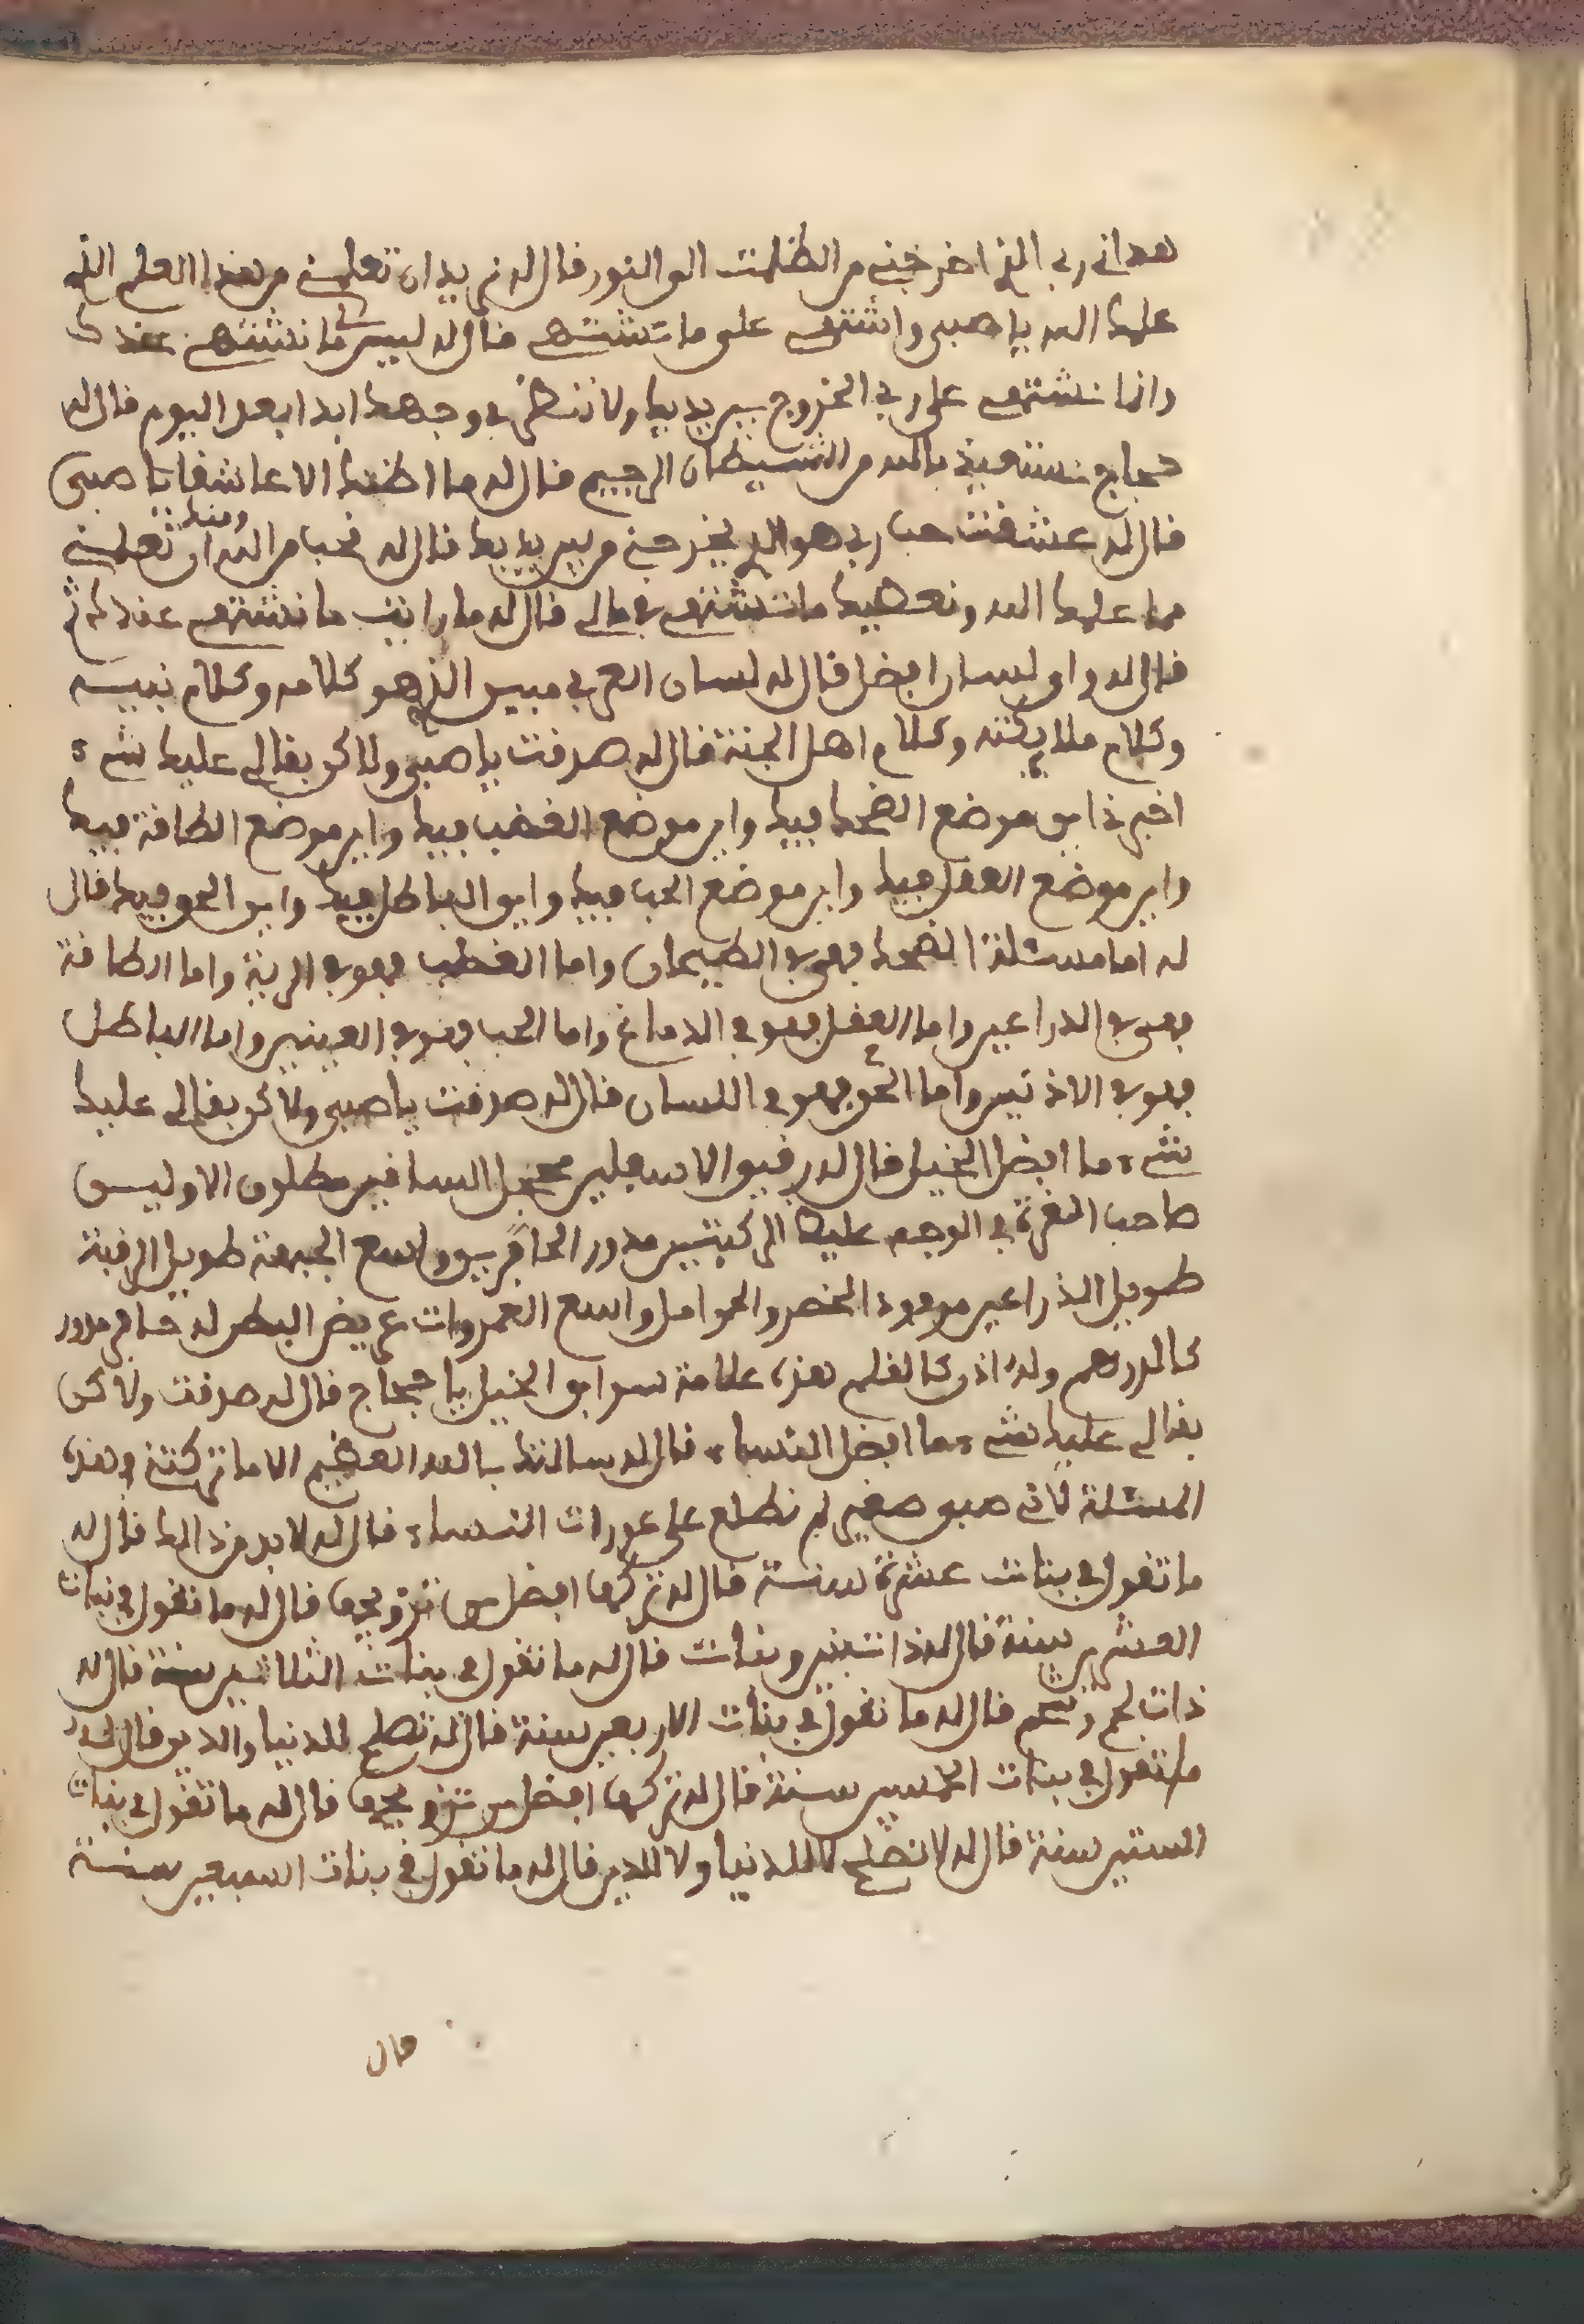 هداني ربي الذي اخرجني من الظلمت الى النور قال له نريد ان تعلمني من هذا العلم الذي
علمك الله يا صبي واشتهي على ما تشتهي قال له ليس لي ما نشتهي عندك
وانما نشتهي على ربي الخروج من بين يديك ولا ننظر في وجهك ابدا بعد اليوم قال له
حجاج نستعيذ بالله من الشيطان الرجيم قال له ما اظنك الا عاشقا يا صبي
قال له عشقت حب ربي هو الذي يخرجني من بين يديك قال له نحب من الله ومنك ان تعلمني
مما علمك الله ونعطيك ما تشتهي في مالي قال له ما رانيت ما نشتهي عندك ثم
قال له واي لسان افضل قال له لسان العربي مبين الذي هو كلامه وكلام نبيه
وكلام ملايكته وكلام اهل الجنة قال له صدقت يا صبي ولاكن بقا لي عليك شيء
اخبرني اين موضع الضحك فيك واين موضع الغضب فيك واين موضع الطاقة فيك
واين موضع العقل فيك واين موضع الحب فيك واين الباطل فيك واين الحق فيك قال
له اما مسئلة الضحك فهي في الطيحان واما الغضب فهو في الرية واما الطاقة
فهي في الدراعين واما العقل فهو في الدماغ واما الحب فهو في العينين واما الباطل
فهو في الاذنين واما الحق فهو في اللسان قال له صدقت يا صبي ولاكن بقا لي عليك
شيء ما افضل الخيل قال له رقيق الاسفلين محجل الساقين مطلوق الاوليين
صاحب الغرة في الوجه عليظ الركبتين مدور الحافرين واسع الجبهة طويل الرقبة
طويل الذراعين مرفود الخصر والحوامل واسع العمروات عريض البطن له حافر مدور
كالدرهم وله اذن كالقلم هذه علامة سوابق الخيل يا حجاج قال له صدقت ولاكن
بقا لي عليك شيء ما افضل النساء قال له سالتك بالله العظيم الا ما تركتني وهذه
المسئلة لاني صبي صغير لم نطلع على عورات النساء قال له لا بد من ذالك قال له
ما تقول في بنات عشرة سنة قال له تركها افضل من تزويجها قال له ما تقول في بنات
العشرين سنة قال له ذات بنين وبنات قال له ما تقول في بنات الثلاثين سنة قال له
ذات لحم وشحم قال له ما تقول في بنات الاربعين سنة قال له تصلح للدنيا والدين قال له
ما تقول في بنات الخمسين سنة قال له تركها افضل من تزويجها قال له ما تقول في بنات
الستين سنة قال له لا تصلح لا للدنيا ولا للدين قال له ما تقول في بنات السبعين سنة
قال